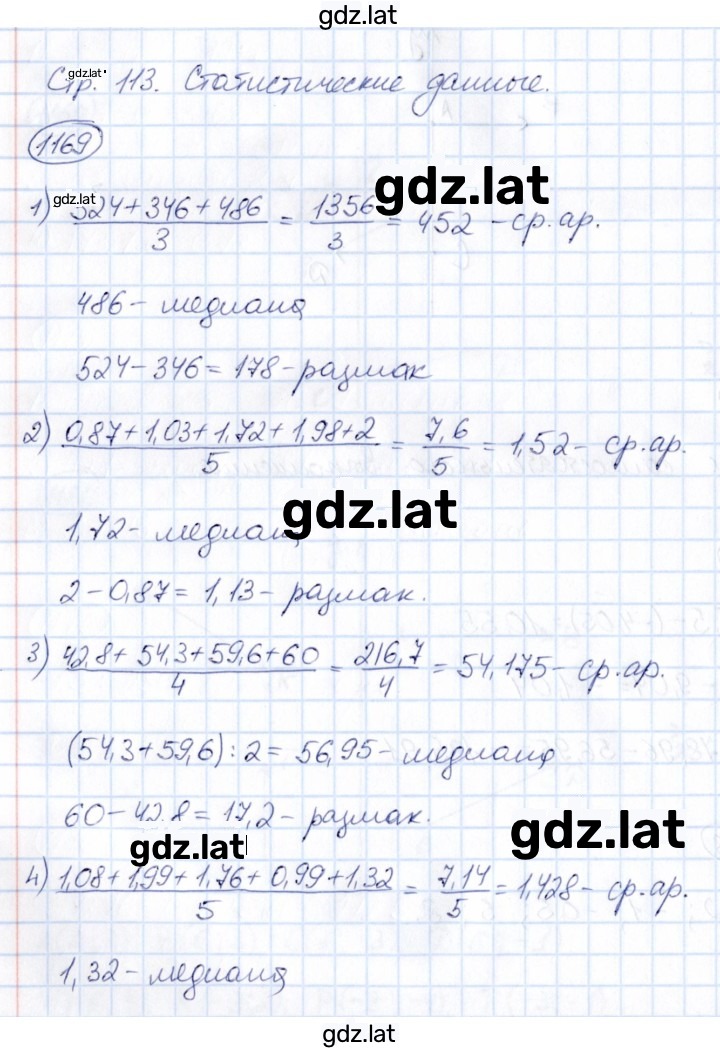 gdz.lat
gdz.lat
Стр. 113. Статистические данные.
1169
gdz.lat
gdz.lat
1) 524+346+486 / 3 = 1356 / 3 = 452 - ср. ар.
486 - медиана
524 - 346 = 178 - размах
2) 0,87+1,03+1,72+1,98+2 / 5 = 7,6 / 5 = 1,52 - ср. ар.
gdz.lat
1,72 - медиана
2 - 0,87 = 1,13 - размах.
3) 42,8+54,3+59,6+60 / 4 = 216,7 / 4 = 54,175 - ср. ар.
(54,3+59,6) : 2 = 56,95 - медиана
60 - 42,8 = 17,2 - размах.
gdz.lat
gdz.lat
4) 1,08+1,99+1,76+0,99+1,32 / 5 = 7,14 / 5 = 1,428 - ср. ар.
1,32 - медиана
gdz.lat